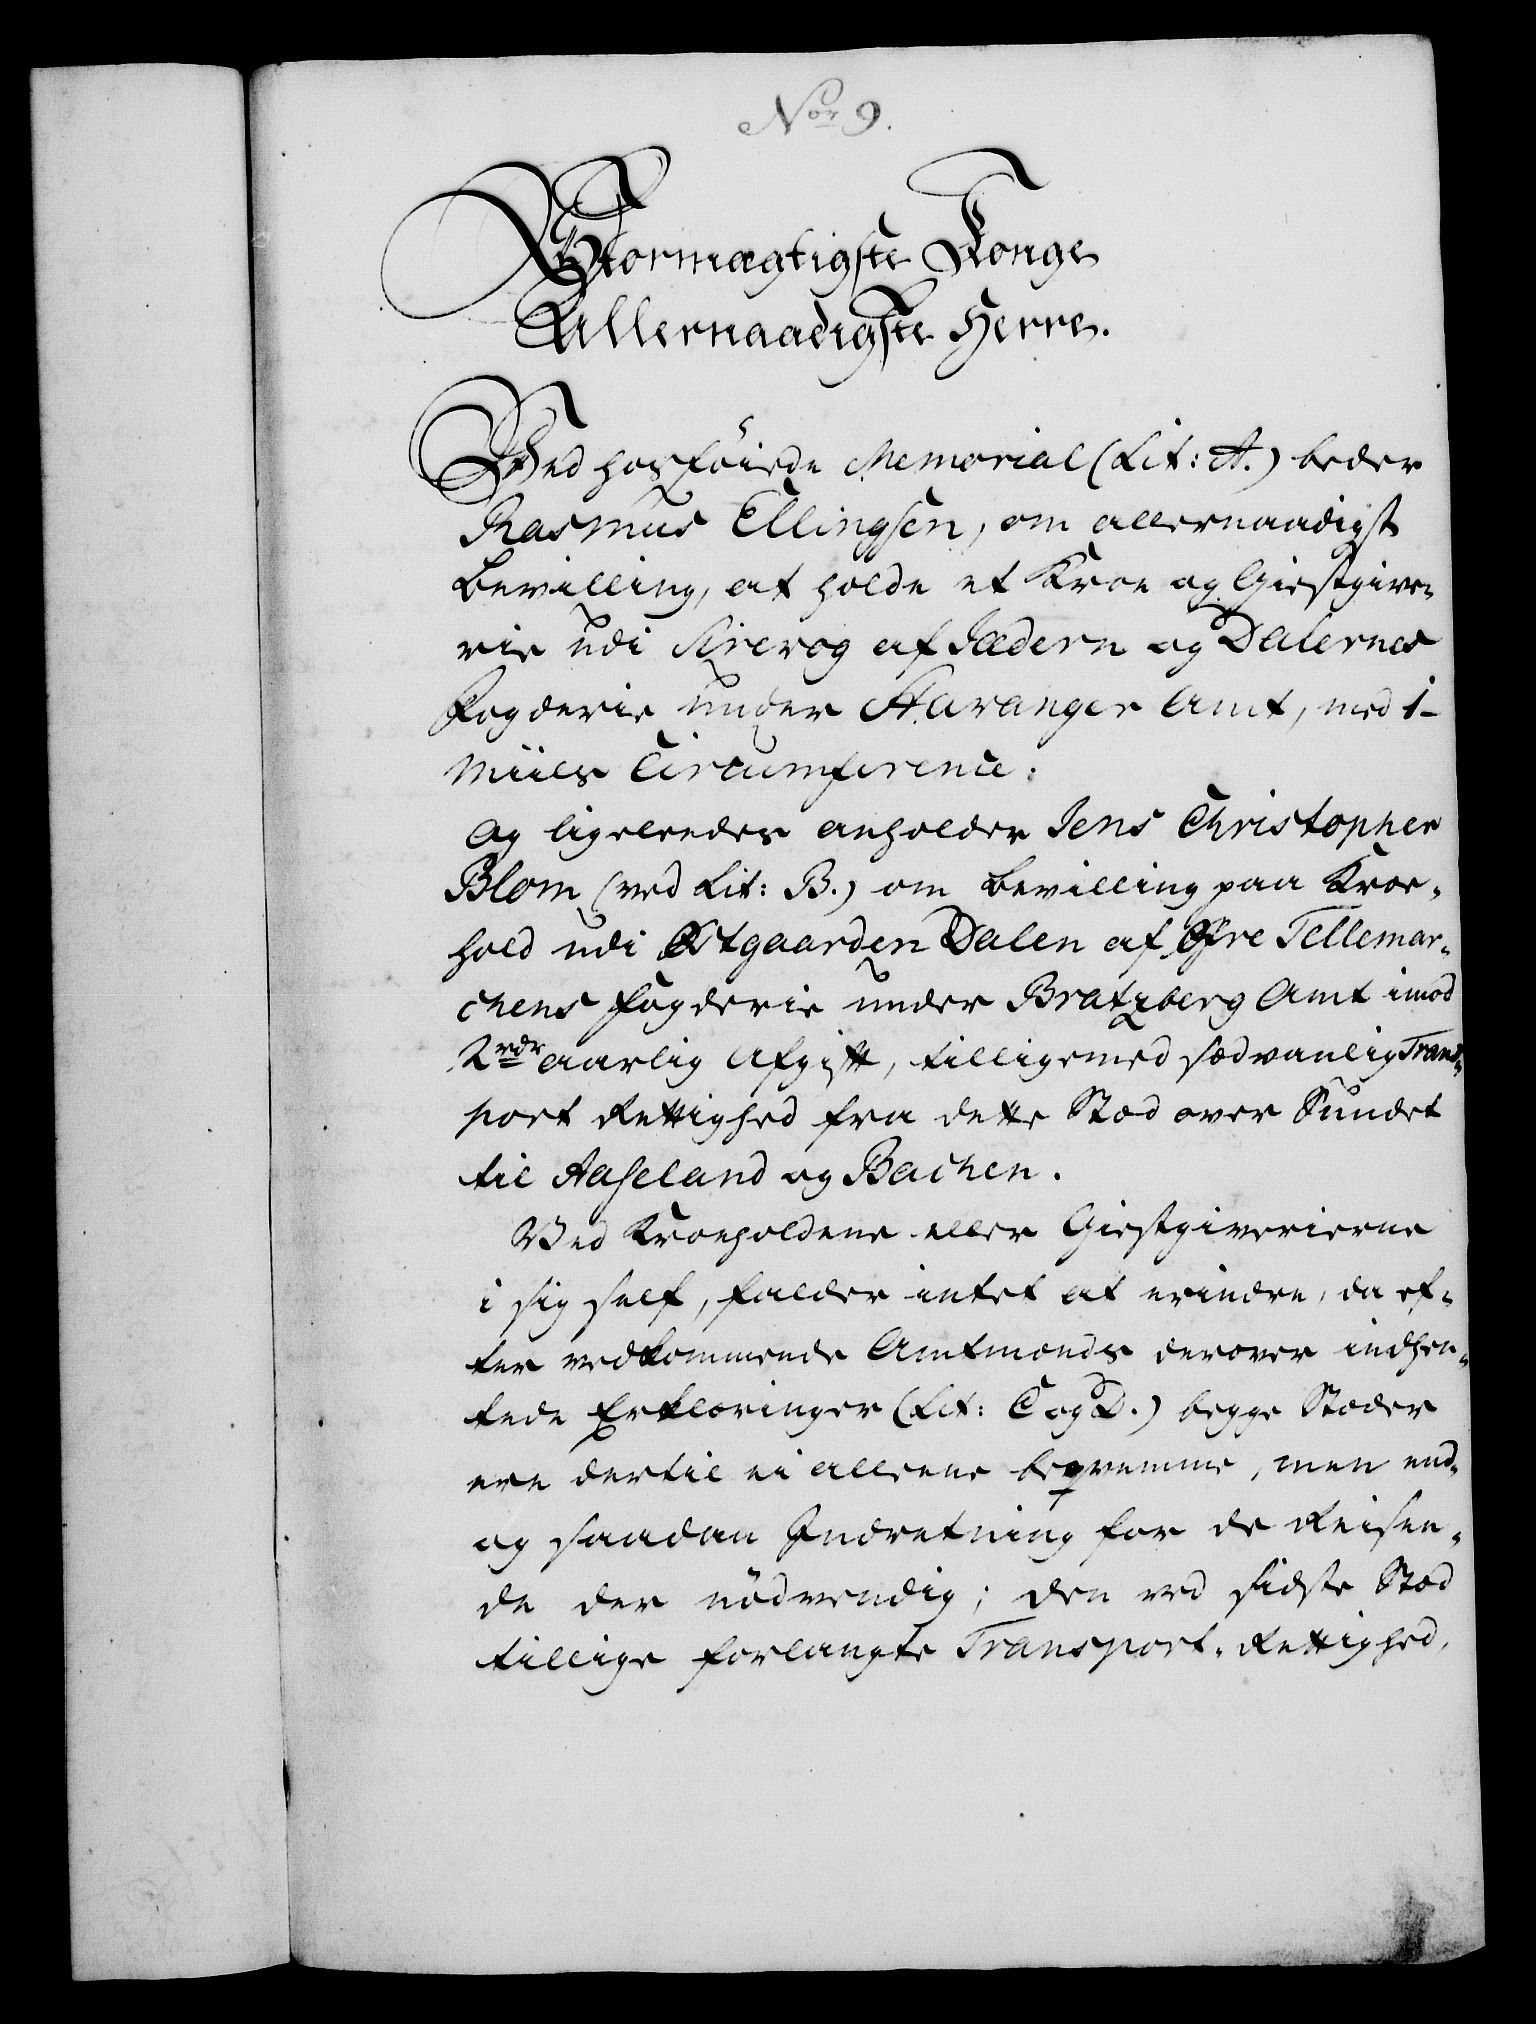 No 9.
Stormægtigste Konge
Allernaadigste Herre.
Ved hosføiede Memorial (Lit: A.) beder
Rasmus Ellingsen, om allernaadigst
Bevilling, at holde et Kroe og Giestgive-
rie udi Sirevog af Jædern og Dalernes
Fogderie under Stavanger Amt, med 1
Miils Circumference.
Og ligeledes anholder Jens Christopher
Blom (ved Lit: B.) om Bevilling paa Kroe-
hold udi Østgaarden Dalen af Øfre Tellemar-
chens Fogderie under Bratzberg Amt imod
2 rdr aarlig Afgift, tilligemed sædvanlig Trans-
port Rettighed fra dette Stæd over Sundet
til Aaseland og Bachen.
Ved Kroeholdene eller Giestgiverierne
i sig self, falder intet at erindre, da ef-
ter vedkommende Amtmænds derover indhen-
tede Erklæringer (Lit: C og D.) begge Stæder
ere dertil ei alleene beqvemme, men end-
og saadan Indretning for de Reisen-
de der nödvendig; den ved sidste Stæd
tillige forlangte Transport-Rettighed,